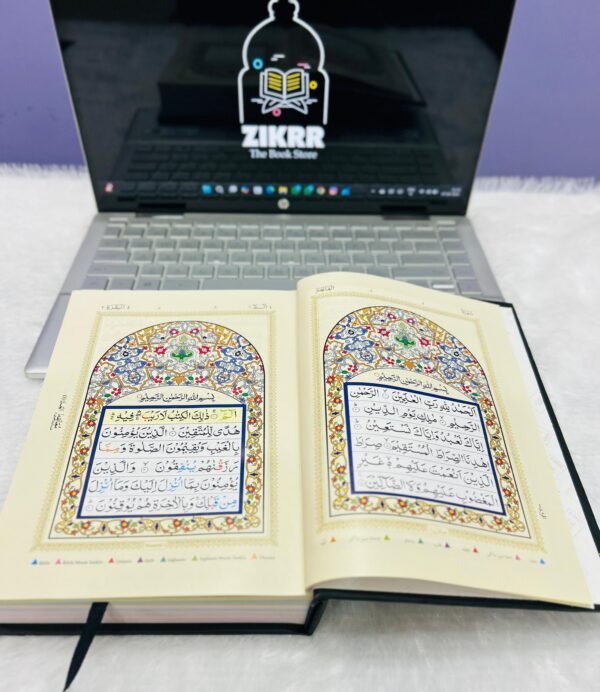 ZIKRR
The Book Store
hp
بِسْمِ اللهِ الرَّحْمٰنِ الرَّحِيْمِ
اَلْحَمْدُ لِلّٰهِ رَبِّ الْعٰلَمِيْنَ ۝ الرَّحْمٰنِ
الرَّحِيْمِ ۝ مٰلِكِ يَوْمِ الدِّيْنِ ۝
اِيَّاكَ نَعْبُدُ وَاِيَّاكَ نَسْتَعِيْنُ ۝
اِهْدِنَا الصِّرَاطَ الْمُسْتَقِيْمَ ۝ صِرَاطَ
الَّذِيْنَ اَنْعَمْتَ عَلَيْهِمْ ۝ غَيْرِ
الْمَغْضُوْبِ عَلَيْهِمْ وَلَا الضَّآلِّيْنَ ۝
بِسْمِ اللهِ الرَّحْمٰنِ الرَّحِيْمِ
الٓمّٓ ۝ ذٰلِكَ الْكِتٰبُ لَا رَيْبَ ۛ فِيْهِ ۛ
هُدًى لِّلْمُتَّقِيْنَ ۝ الَّذِيْنَ يُؤْمِنُوْنَ
بِالْغَيْبِ وَيُقِيْمُوْنَ الصَّلٰوةَ وَمِمَّا
رَزَقْنٰهُمْ يُنْفِقُوْنَ ۝ وَالَّذِيْنَ
يُؤْمِنُوْنَ بِمَآ اُنْزِلَ اِلَيْكَ وَمَآ اُنْزِلَ
مِنْ قَبْلِكَ وَبِالْاٰخِرَةِ هُمْ يُوْقِنُوْنَ ۝